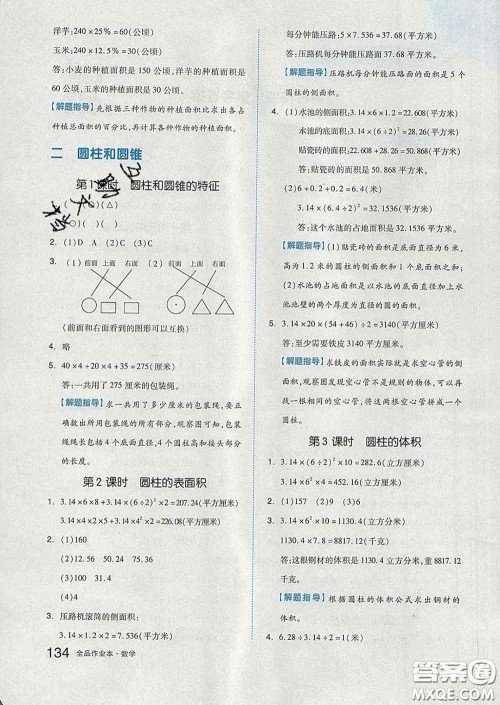 洋芋:240×25%=60(公顷)
玉米:240×12.5%=30(公顷)
答:小麦的种植面积是 150 公顷,洋芋的种植面积是
60 公顷,玉米的种植面积是 30 公顷。
【解题指导】先根据三种作物的种植面积比求出各占
种植总面积的百分比,再计算各种作物的种植面积。
二 圆柱和圆锥
第1课时 圆柱和圆锥的特征
2. (1)D A (2)C (3)B
3. (1) 前面 上面 右面 (2) 前面 上面 右面
(前面和右面看到的图形可以互换)
4. 略
5. 40×4+20×4+35=275(厘米)
答:一共用了 275 厘米的包装绳。
【解题指导】求一共用了多少厘米的包装绳,要用
正确的方法观察图。观察图可知,包装绳的长度
包含 4 个圆柱的底面直径、4 个圆柱高和接头部分
的长度。
第 2 课时 圆柱的表面积
1. 3.14×6×8+3.14×(6÷2)²×2=207.24(平方厘米)
3.14×4×2×5+3.14×4²×2=226.08(平方厘米)
2. (1)160
(2)12.56 50.24 75.36
(3)100 31.4
(4)150
3. 压路机滚筒的侧面积:
3.14×1.2×2=7.536(平方米)
134 全品作业本·数学
每分钟能压路:5×7.536=37.68(平方米)
答:压路机每分钟能压路面 37.68 平方米。
【解题指导】压路机每分钟能压路面的面积是 5 个
圆柱的侧面积。
4. (1)水池的侧面积:3.14×6×1.2=22.608(平方米)
水池的底面积:3.14×(6÷2)²=28.26(平方米)
贴瓷砖的面积:22.608+28.26=50.868(平方米)
答:贴瓷砖的面积是 50.868 平方米。
(2)3.14×(6÷2+0.2×2)²=36.2984(平方米)
答:这个水池的占地面积是 36.2984 平方米。
【解题指导】(1)贴瓷砖的面积是底面直径为 6 米,
高为 1.2 米的圆柱的侧面积和 1 个底面积之和;
(2)水池的占地面积是以水池的底面直径加上水
池池壁的两个厚度为直径的圆的面积。
5. 3.14×20×(54+46)÷2=3140(平方厘米)
答:至少需要铁皮 3140 平方厘米。
【解题指导】求铁皮的面积实际就是求空心管的侧
面积,观察图发现,可以把两根一样的空心管对接
起来,对接后的两根空心管拼成一个圆柱。
第 3 课时 圆柱的体积
1. 3.14×(6÷2)²×10=282.6(立方厘米)
3.14×4²×2=100.48(立方厘米)
2. (1)157 (2)9 (3)9 (4)50.24
3. 3.14×6²×10=1130.4(立方分米)
1130.4×7.8=8817.12(千克)
答:这根钢材的体积是 1130.4 立方分米,重 8817.12
千克。
【解题指导】根据圆柱的体积公式求出钢材的
体积。
4. 6.28÷3.14÷2=1(米)
答案圈
MXQE.COM